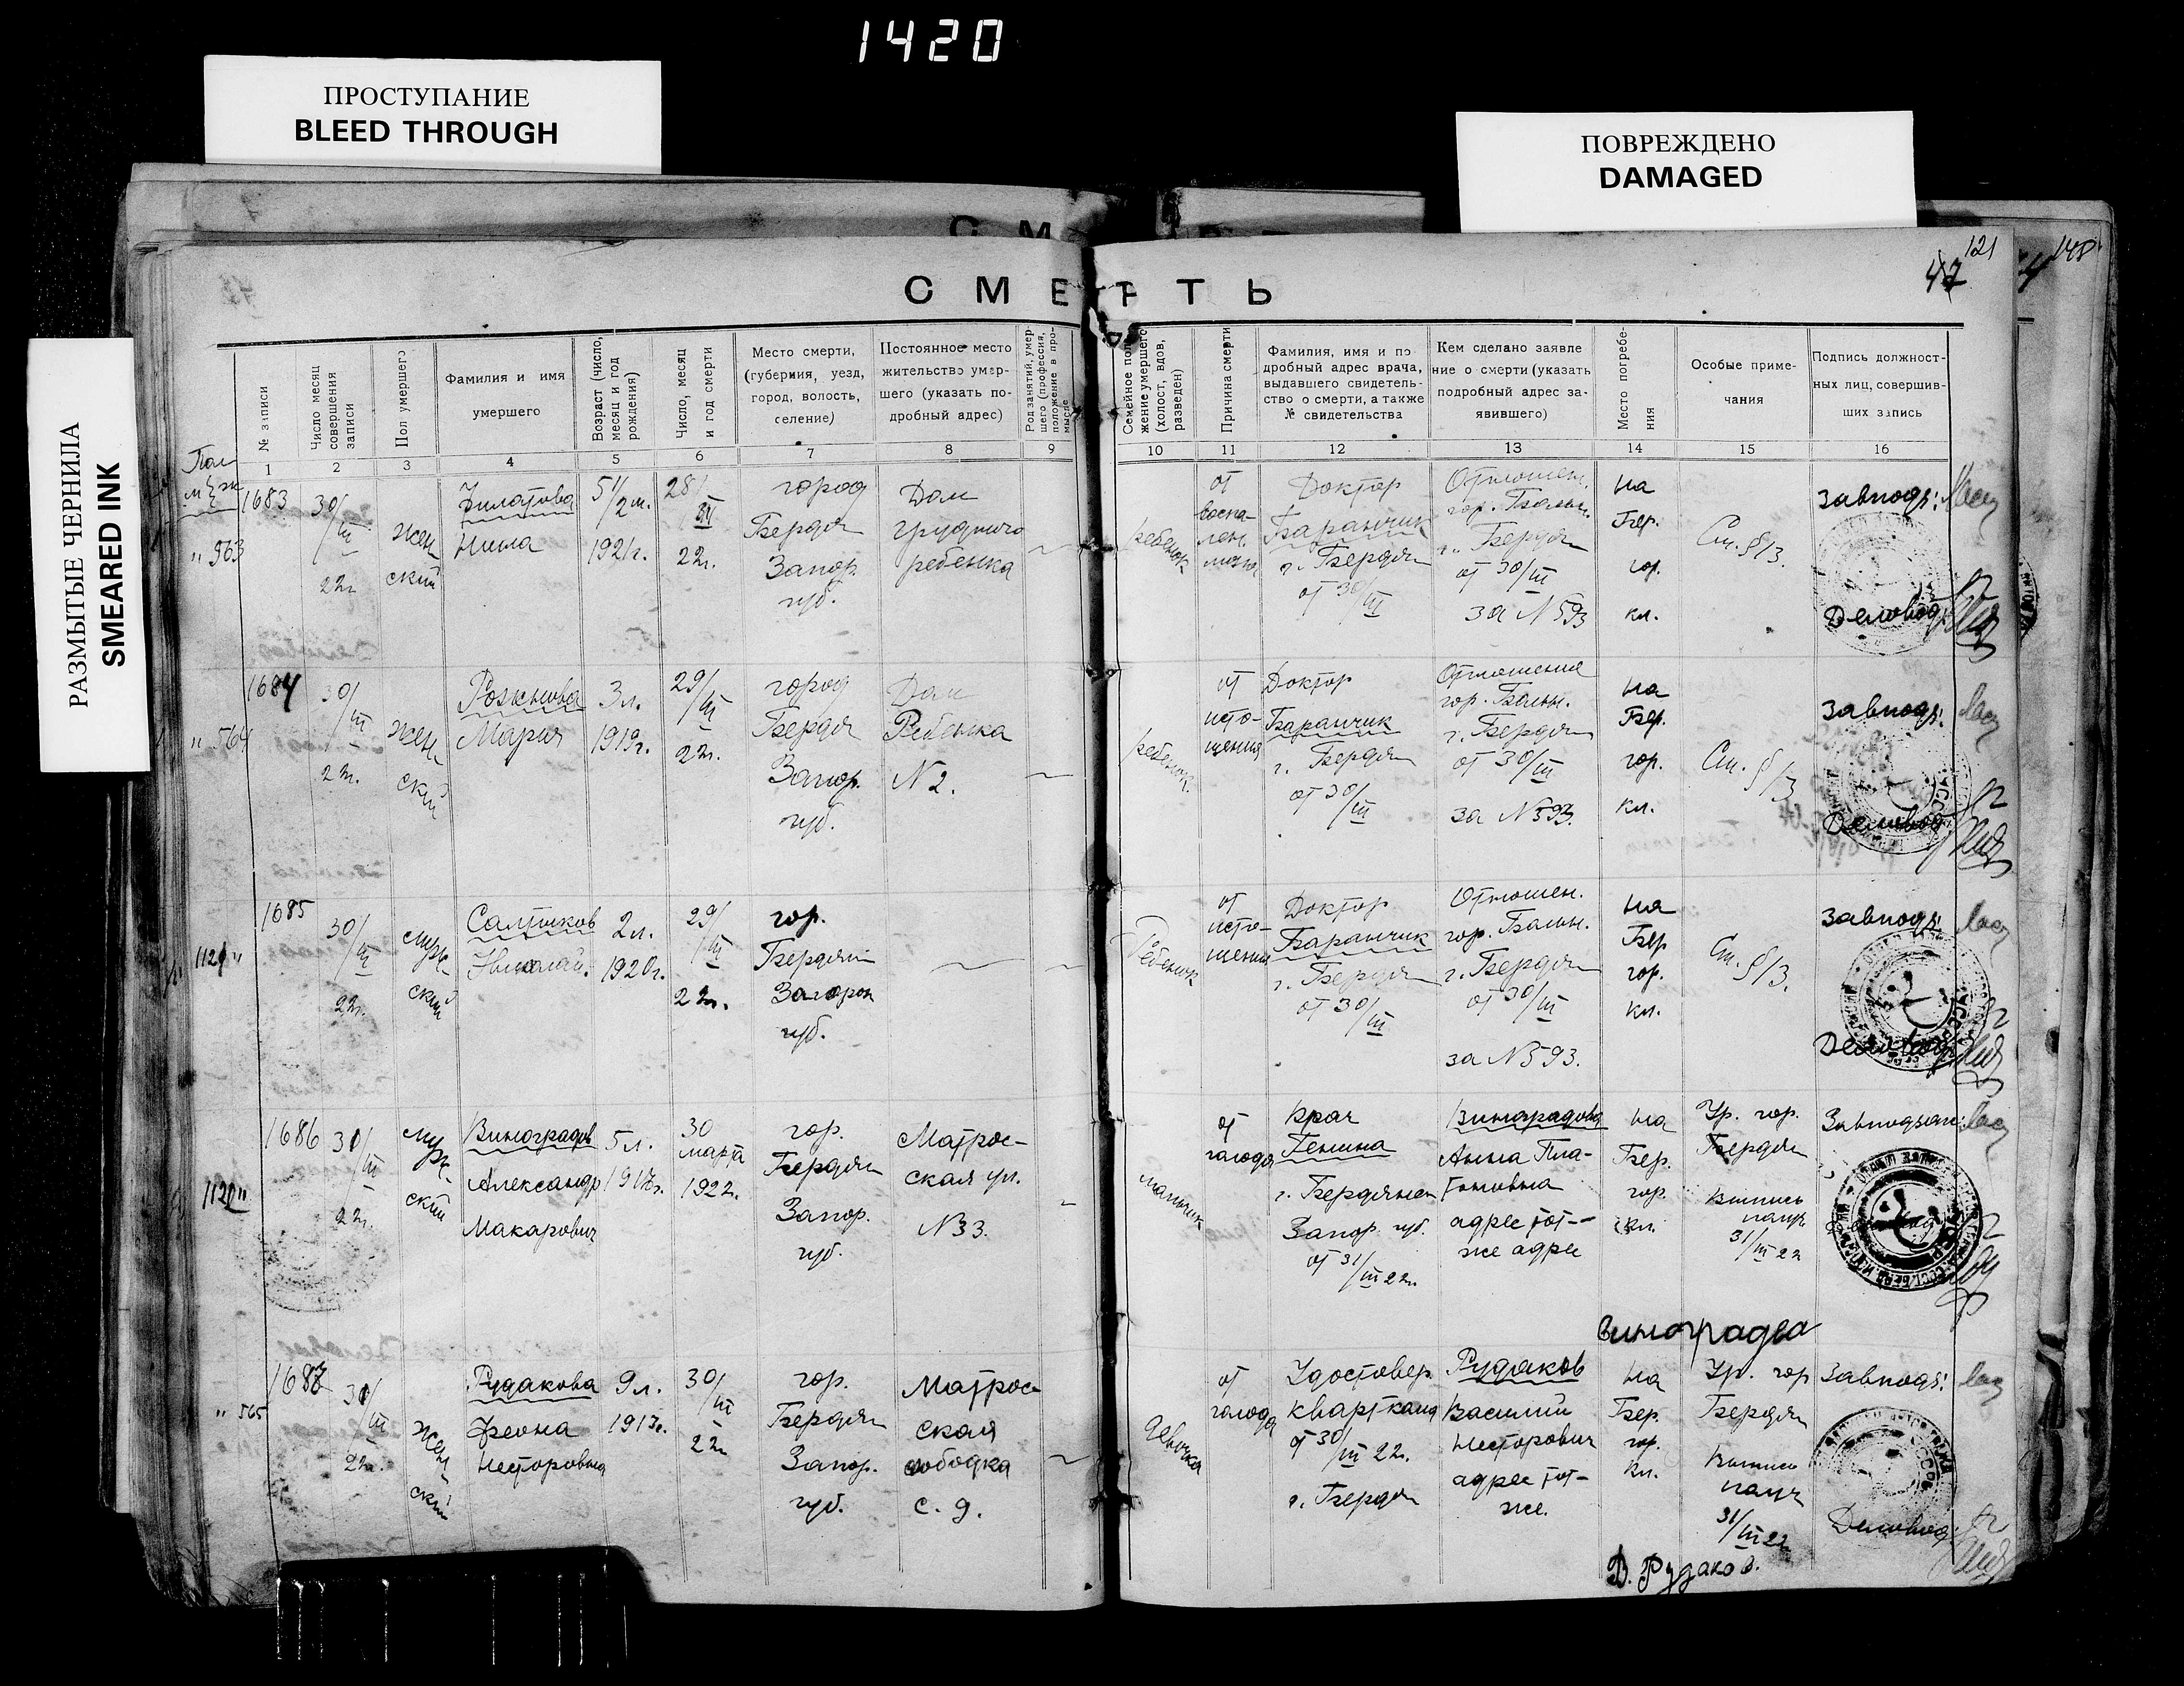 1420
ПРОСТУПАНИЕ
BLEED THROUGH
ПОВРЕЖДЕНО
DAMAGED
РАЗМЫТЫЕ ЧЕРНИЛА
SMEARED INK
121
47
148
СМЕРТЬ
№ записи
Число месяц совершения записи
Пол умершего
Фамилия и имя
умершего
Возраст (число, месяц и год рождения)
Число, месяц и год смерти
Место смерти,
(губерния, уезд,
город, волость,
селение)
Постоянное место
жительство умер-
шего (указать по-
дробный адрес)
Род занятий, умер-
шего (профессия,
положение в про-
мысле
Семейное поло-
жение умершего
(холост, вдов,
разведен)
Причина смерти
Фамилия, имя и по
дробный адрес врача,
выдавшего свидетель-
ство о смерти, а также
№ свидетельства
Кем сделано заявле
ние о смерти (указать
подробный адрес за-
явившего)
Место погребе-
ния
Особые приме-
чания
Подпись должност-
ных лиц, совершив-
ших запись
1 2 3 4 5 6 7 8 9 10 11 12 13 14 15 16
Пол
м ж
1683
" 563
30/III
22г.
жен-
ский
Филатова
Нина
5 1/2 м.
1921г.
28/III
22г.
город
Бердян
Запор.
губ.
Дом
грудного
ребенка
ребенок
от
воспа-
лен.
мозга
Доктор
Баранчик
г. Бердян
от 30/III
Отношен.
гор. Больн.
г. Бердян
от 30/III
за N 593
на
Бер.
гор.
кл.
См. §/3.
Завподз:
Деловод:
1684
" 564
30/III
22г.
жен-
ский
Рожнова
Мария
3 л.
1919г.
29/III
22г.
город
Бердя
Запор.
губ.
Дом
Ребенка
N 2.
ребенок.
от
исто-
щения
Доктор
Баранчик
г. Бердян
от 30/III
Отношения
гор. Больн.
г. Бердян
от 30/III
за N 593.
на
Бер.
гор.
кл.
См. §/3
Завподз:
Деловод
1685
1121 "
30/III
22г.
муж-
ский
Салтыков
Николай.
2 л.
1920г.
29/III
22г.
гор.
Бердян
Запорож
губ.
Ребенок
от
исто-
щения
Доктор
Баранчик
г. Бердян
от 30/III
Отношен.
гор. Больн.
г. Бердян
от 30/III
за N 593.
на
Бер
гор.
кл.
См. §/3.
Завподз:
Деловод:
1686
1122 "
30/III
22г.
муж-
ский
Виноградов
Александр
Макарович
5 л.
1917г.
30
марта
1922г.
гор.
Бердян
Запор.
губ.
Матрос-
ская ул.
N 33.
мальчик
от
голода
Врач
Генина
г. Бердянск
Запор. губ.
от 31/III 22г.
Виноградова
Анна Пла-
тоновна
адрес тот-
же адрес
на
Бер.
гор.
кл.
Ур. гор.
Бердян
Выпись
получ
31/III 22
Завподзап:
Виноградва
1687
" 565
30/III
22г.
жен-
ский
Рудакова
Феона
Несторовна
9 л.
1913г.
30/III
22г
гор.
Бердян
Запор.
губ.
Матрос-
ская
слободка
с. д.
девочка
от
голода
Удостовер.
кварткома
от 30/III 22г.
г. Бердян
Рудаков
Василий
Несторович
адрес тот-
же.
на
Бер.
гор.
кл.
Ур. гор
Бердян
Выпись
получ
31/III 22
Завподз:
Деловод:
В. Рудаков.